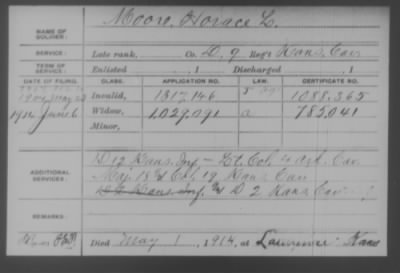 Moore, Horace L.
NAME OF SOLDIER:
SERVICE: Late rank, Co. D, 9 Reg't Kans. Cav
TERM OF SERVICE: Enlisted , 1 Discharged , 1
DATE OF FILING. CLASS. APPLICATION NO. CERTIFICATE NO.
1904 May 23 Invalid, 1317,146 1088.365
1914 June 6 Widow, 1,029,091 a 785,041
Minor,
D 12 Kans. Inf. - Lt. Col. 4 Ark. Cav
ADDITIONAL SERVICES: Maj. 18 & Col. 19 Kans Cav
D 2 Kans. Inf. & D 2 Kans Cav
REMARKS:
Died May 1, 1914, at Lawrence Kans